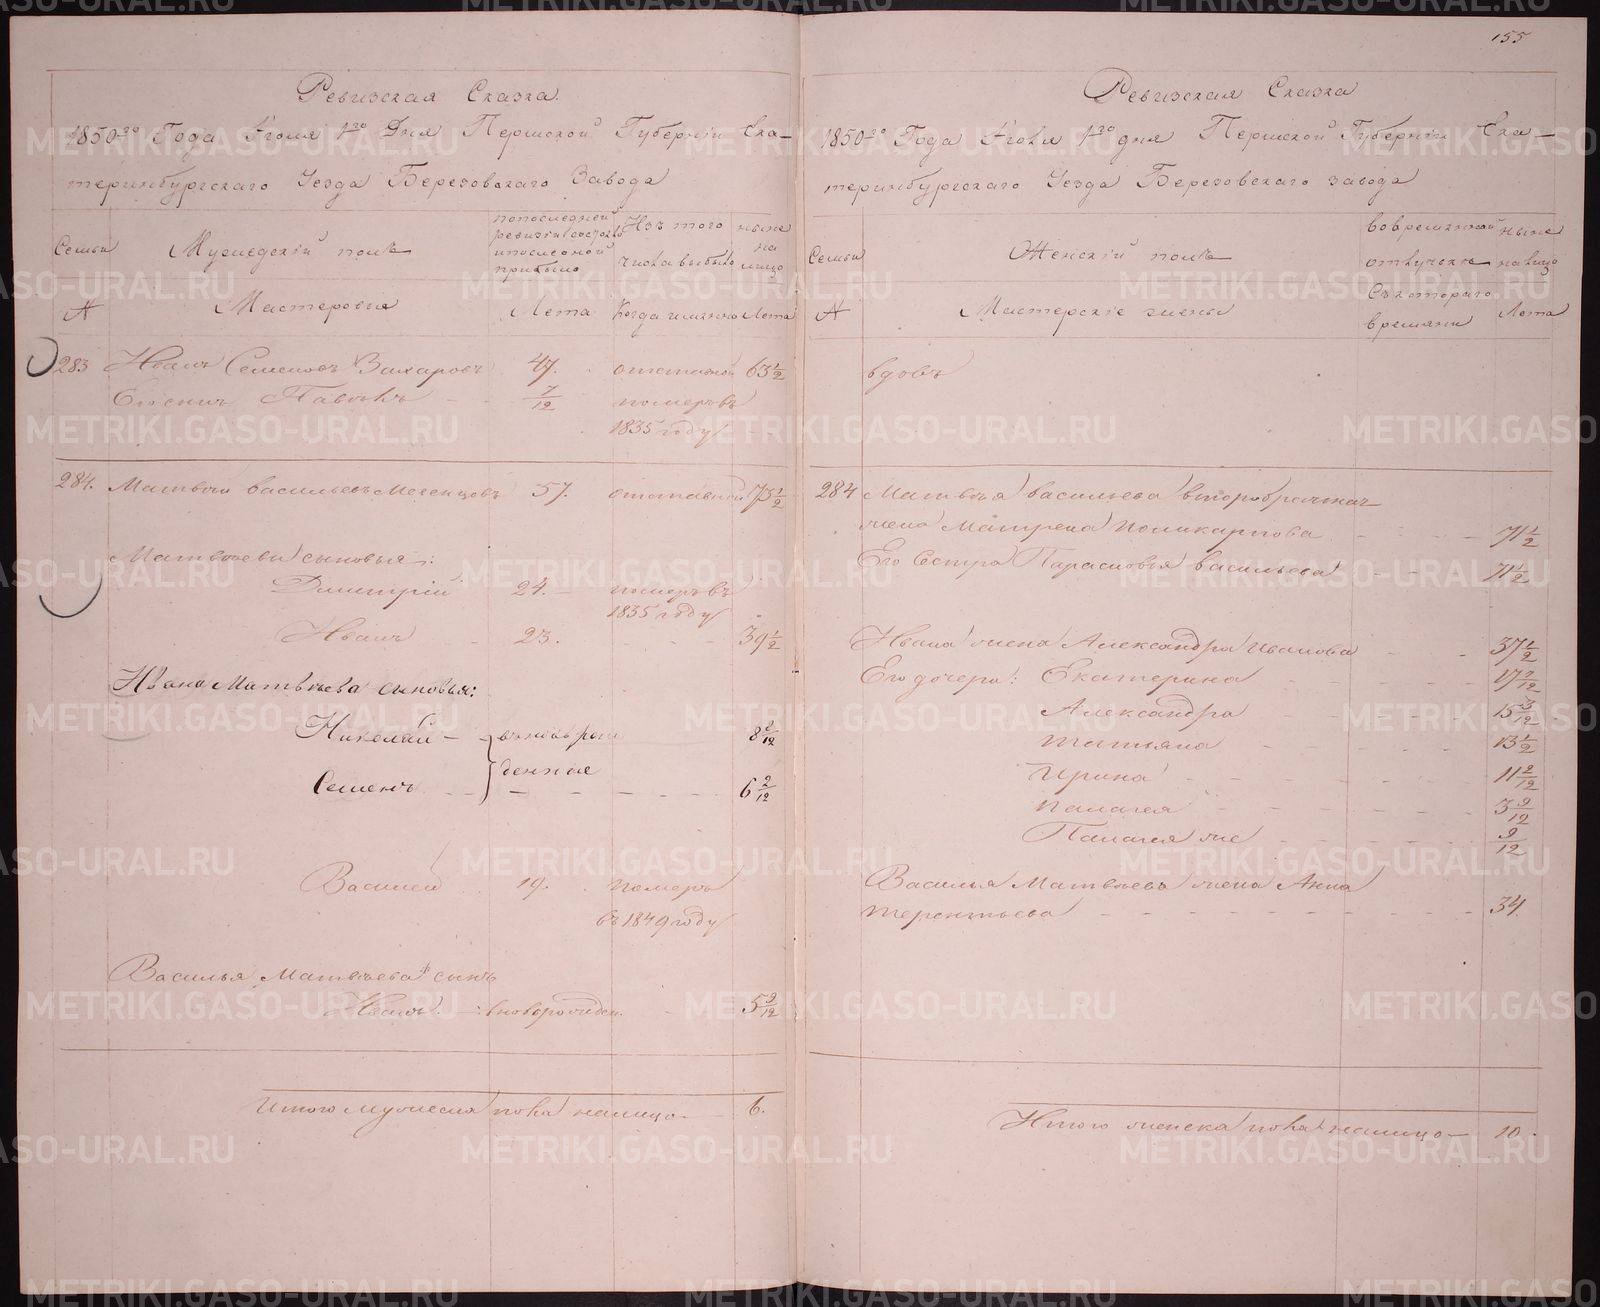 155
Ревизская Сказка.
1850го Года Июля 1го Дня Пермской Губернии Ека-
теринбургскаго Уезда Березовскаго Завода
Семьи
Мужедскій полъ
по последней ревизіи состояло и после оной прибыло
Изъ того числа выбыло
ныне на лицо
№
Мастеровыя
Лета
Когда именно
Лета
283 Иванъ Семеновъ Захаровъ 47. отставной 63 1/2
7/12 померъ въ
1835 году
284. Матвей Васильевъ 57. отставной 73 1/2
Матвеевы сыновья:
Дмитрій 24. померъ въ
1835 году
Иванъ 23. 39 1/2
Ивана Матвѣева сыновья:
Николай вновь рож 8 8/12
денные
Семенъ 6 2/12
Василей 19. померъ
въ 1849 году
Василья Матвѣева сынъ
Иванъ вноворожден. 5 9/12
Итого мужеска пола налицо 6.
Ревизская Сказка
1850го Года Июля 1го дня Пермской Губерніи Ека-
теринбургскаго Уезда Березовскаго завода
Семьи
Женскій полъ
во временной отлучке
ныне на лицо
№
Мастерскіе жены
Съ котораго времяни
Лета
вдовъ
284 Матвѣя Васильева второбрачная
жена Матрена Поликарпова 71 1/2
Его Сестра Парасковья Васильева 71 1/2
Ивана жена Александра Иванова 37 1/2
Его дочери: Екатерина 17 7/12
Александра 15 3/12
Татьяна 13 1/2
Ирина 11 2/12
Палагея 3 9/12
Палагея же 9/12
Василья Матвѣева жена Анна
Терентьева 34.
Итого женска пола налицо 10.
METRIKI.GASO-URAL.RU